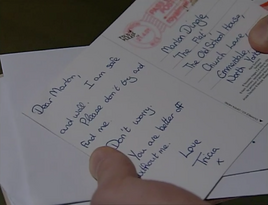 Dear Marlon,
I am safe
and well. Please don't try and
find me.
Don't worry
You are better off
without me.
Love
Tricia
x
Marlon Dingle,
The 'Flat'
The Old School House,
Church Lane,
Emmerdale,
North York